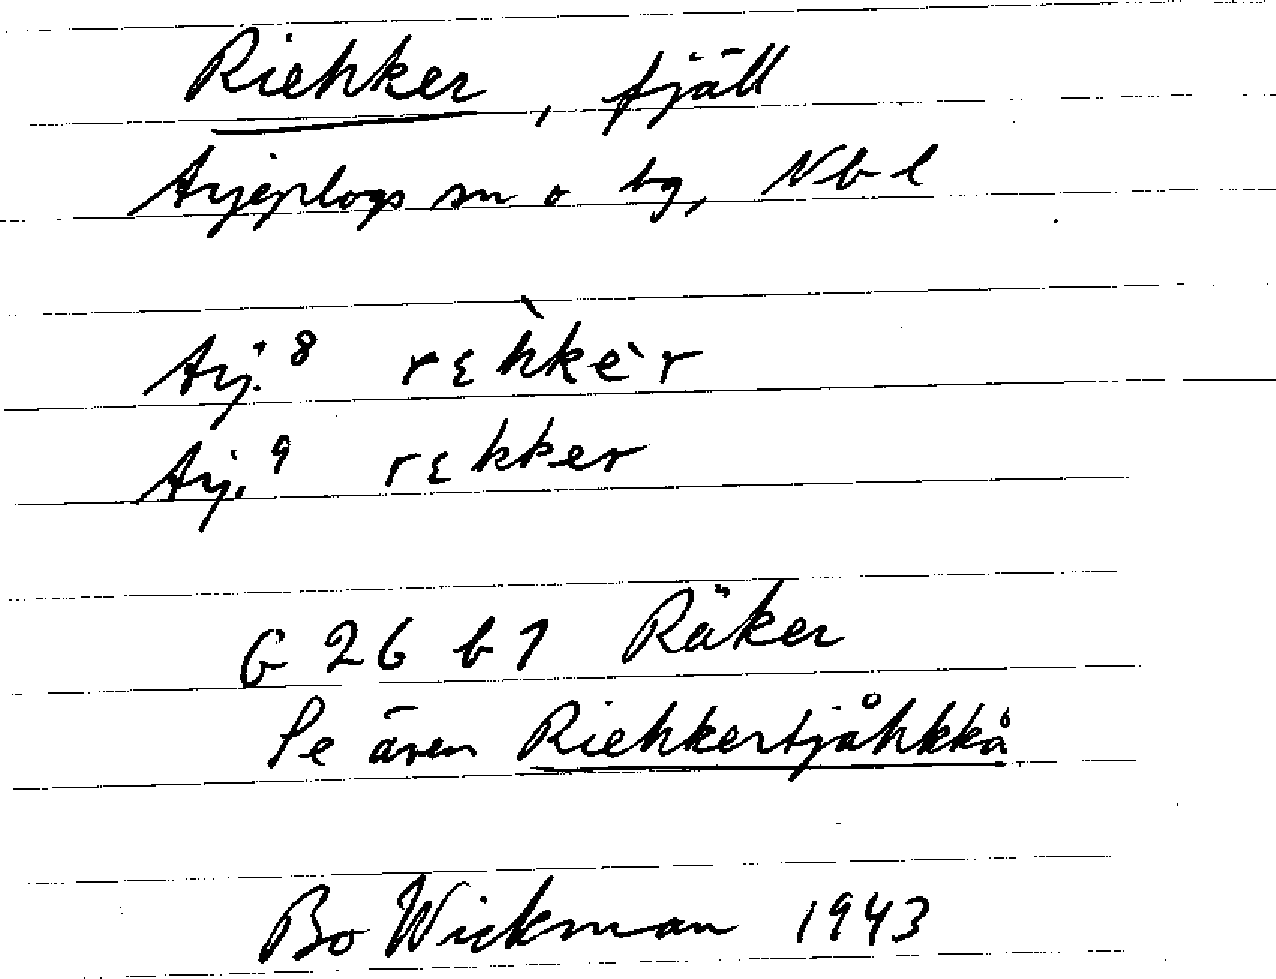 Riehker, fjäll
Arjeplogs sn o tg, Nbl
Arj.8 rɛ̀hke`r
Arj.9 rɛkker
G 26 b 7 Räker
Se även Riehkertjåhkkå
Bo Wickman 1943